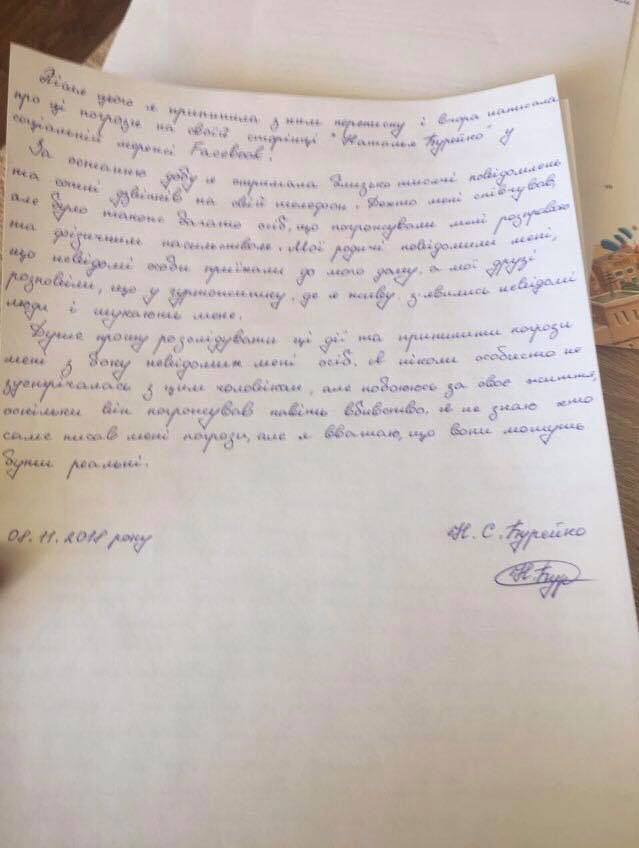 Після цього я припинила з ним переписку і вчора написала
про ці погрози на своїй сторінці "Наталья Бурейко" у
соціальній мережі Facebook.
За останню добу я отримала близько тисячі повідомлень
та сотні дзвінків на свій телефон. Дехто мені співчував,
але було також багато осіб, що погрожували мені розправою
та фізичним насильством. Мої родичі повідомили мені,
що невідомі особи приїжали до мого дому, а мої друзі
розповіли, що у гуртожитку, де я живу, з'явились невідомі
люди і шукають мене.
Дуже прошу розслідувати ці дії та припинити погрози
мені з боку невідомих мені осіб. Я ніколи особисто не
зустрічалась з цим чоловіком, але побоююсь за своє життя,
оскільки він погрожував навіть вбивством. Я не знаю хто
саме писав мені погрози, але я вважаю, що вони можуть
бути реальні.
08.11.2018 року
Н. С. Бурейко
Н. Бур